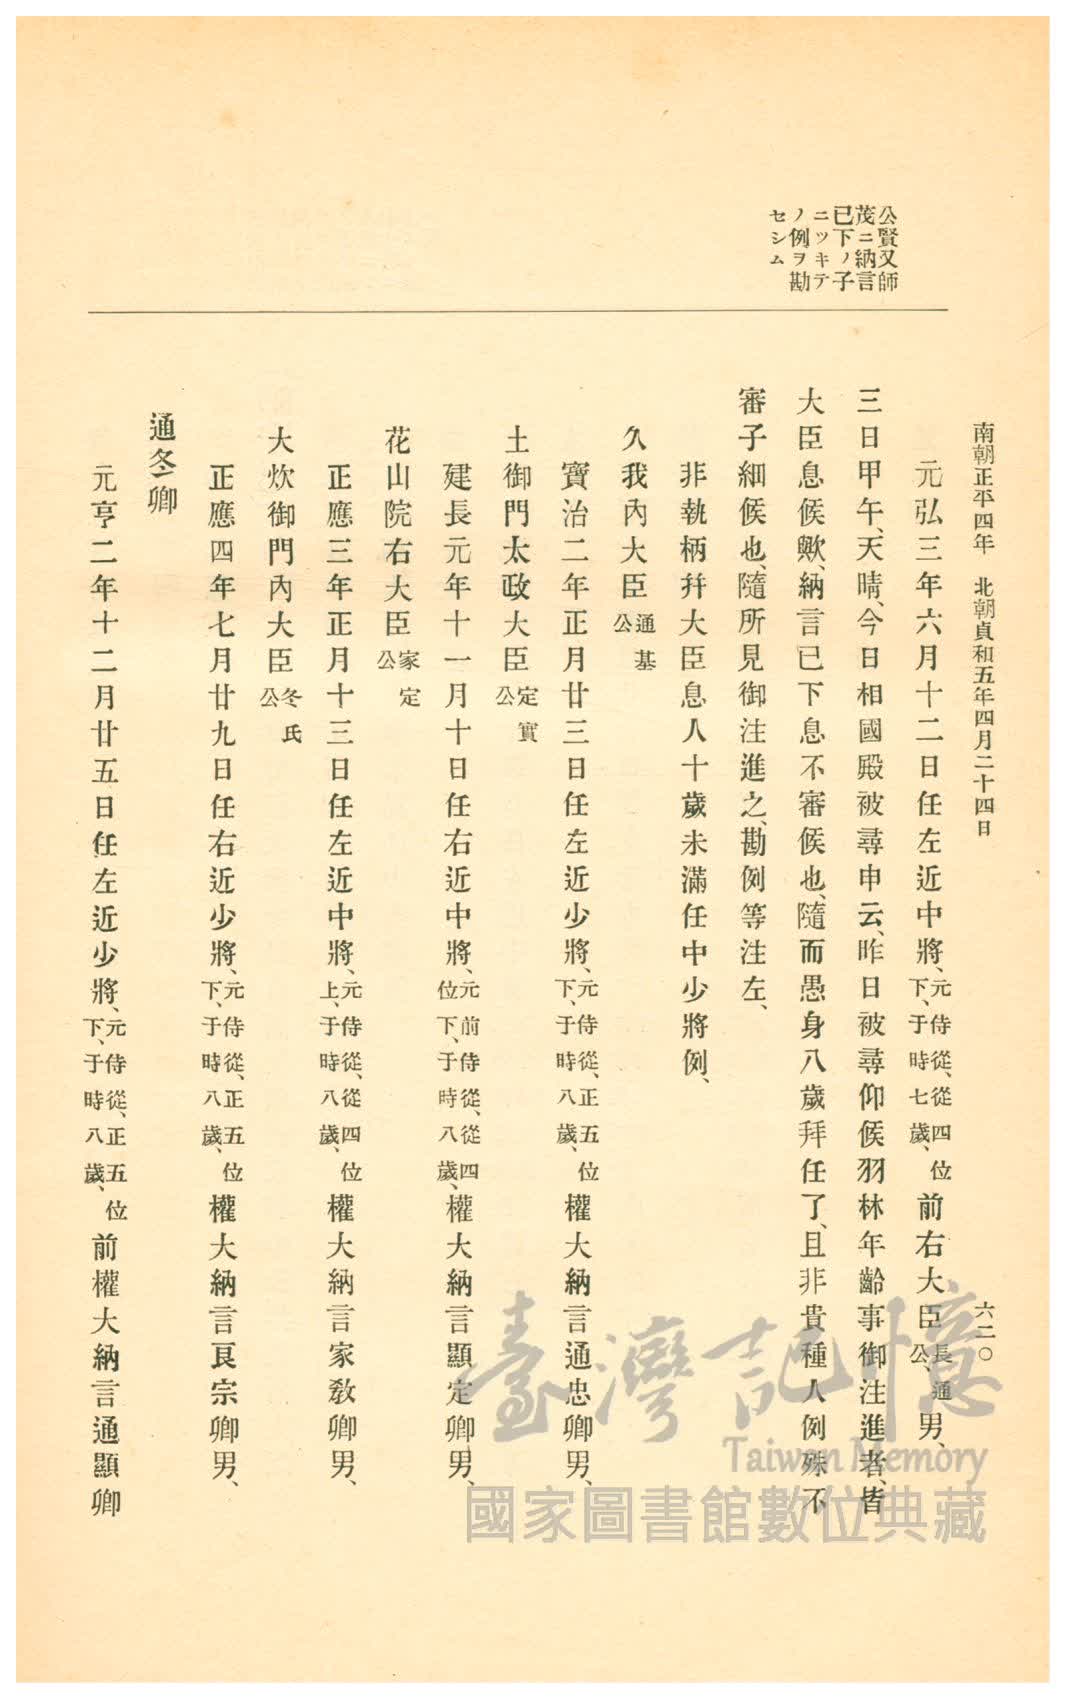 公賢又師
茂ニ納言
已下ノ子
ニツキテ
ノ例ヲ勘
セシム
南朝正平四年 北朝貞和五年四月二十四日
六二〇
元弘三年六月十二日任左近中將、元侍從、從四位下、于時七歲、前右大臣長通公、男、
三日甲午、天晴、今日相國殿被尋申云、昨日被尋仰候羽林年齡事御注進者、皆
大臣息候歟、納言已下息不審候也、隨而愚身八歲拜任了、且非貴種人例殊不
審子細候也、隨所見御注進之、勘例等注左、
非執柄幷大臣息人十歲未滿任中少將例、
久我內大臣通基公
寶治二年正月廿三日任左近少將、元侍從、正五位下、于時八歲、權大納言通忠卿男、
土御門太政大臣定實公
建長元年十一月十日任右近中將、元前侍從、從四位下、于時八歲、權大納言顯定卿男、
花山院右大臣家定公
正應三年正月十三日任左近中將、元侍從、從四位上、于時八歲、權大納言家教卿男、
大炊御門內大臣冬氏公
正應四年七月廿九日任右近少將、元侍從、正五位下、于時八歲、權大納言良宗卿男、
通冬卿
元亨二年十二月廿五日任左近少將、元侍從、正五位下、于時八歲、前權大納言通顯卿
臺灣記憶
Taiwan Memory
國家圖書館數位典藏